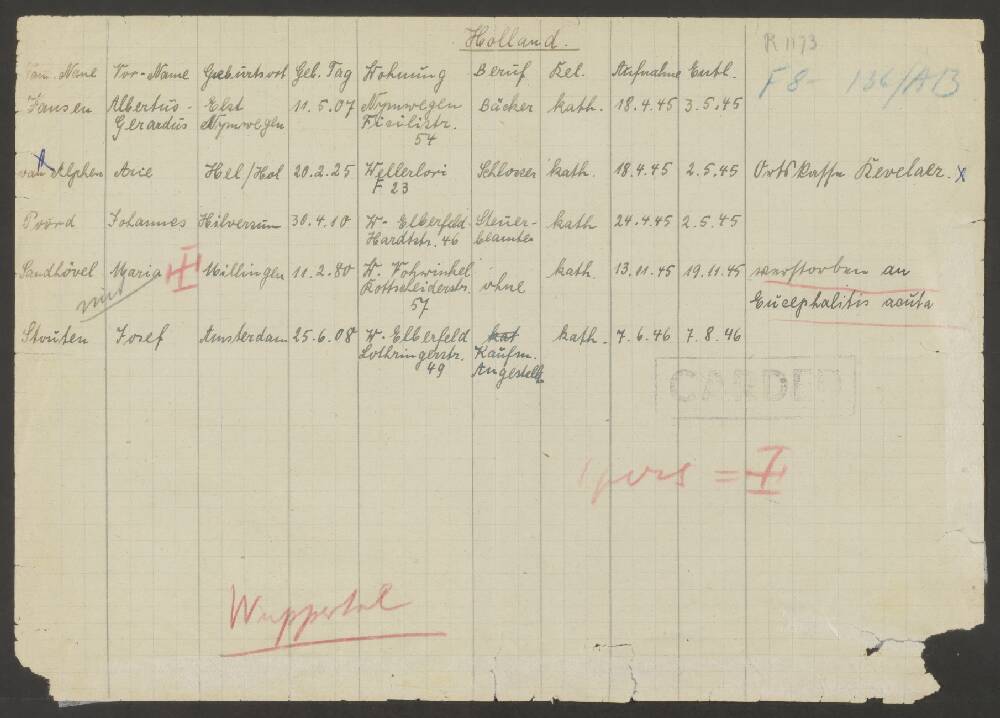 Holland.
R 1173
Fam. Name Vor-Name Geburtsort Geb. Tag Wohnung Beruf Rel. Aufnahme Entl.
F8- 136/A13
Jansen Albertus- Elst 11.5.07 Nymwegen Bäcker kath. 18.4.45 3.5.45
Gerardus Nymwegen
54
van Alphen Arie Hel/Hol 20.2.25 Wellerlori Schlosser kath. 18.4.45 2.5.45 Ortskasse Kevelaer. x
F 23
Poord Johannes Hilversum 30.4.10 W- Elberfeld Steuer- kath 24.4.45 2.5.45
Hardtstr. 46 beamter
Sandhövel Maria Millingen 11.2.80 W. Vohwinkel ohne kath. 13.11.45 19.11.45 verstorben an
Rottscheiderstr. Encephalitis acuta
57
Stouten Josef Amsterdam 25.6.08 W- Elberfeld kat kath. 7.6.46 7.8.46
Lothringerstr. Kaufm.
49 Angestellt
CARDED
1 pers =
Wuppertal